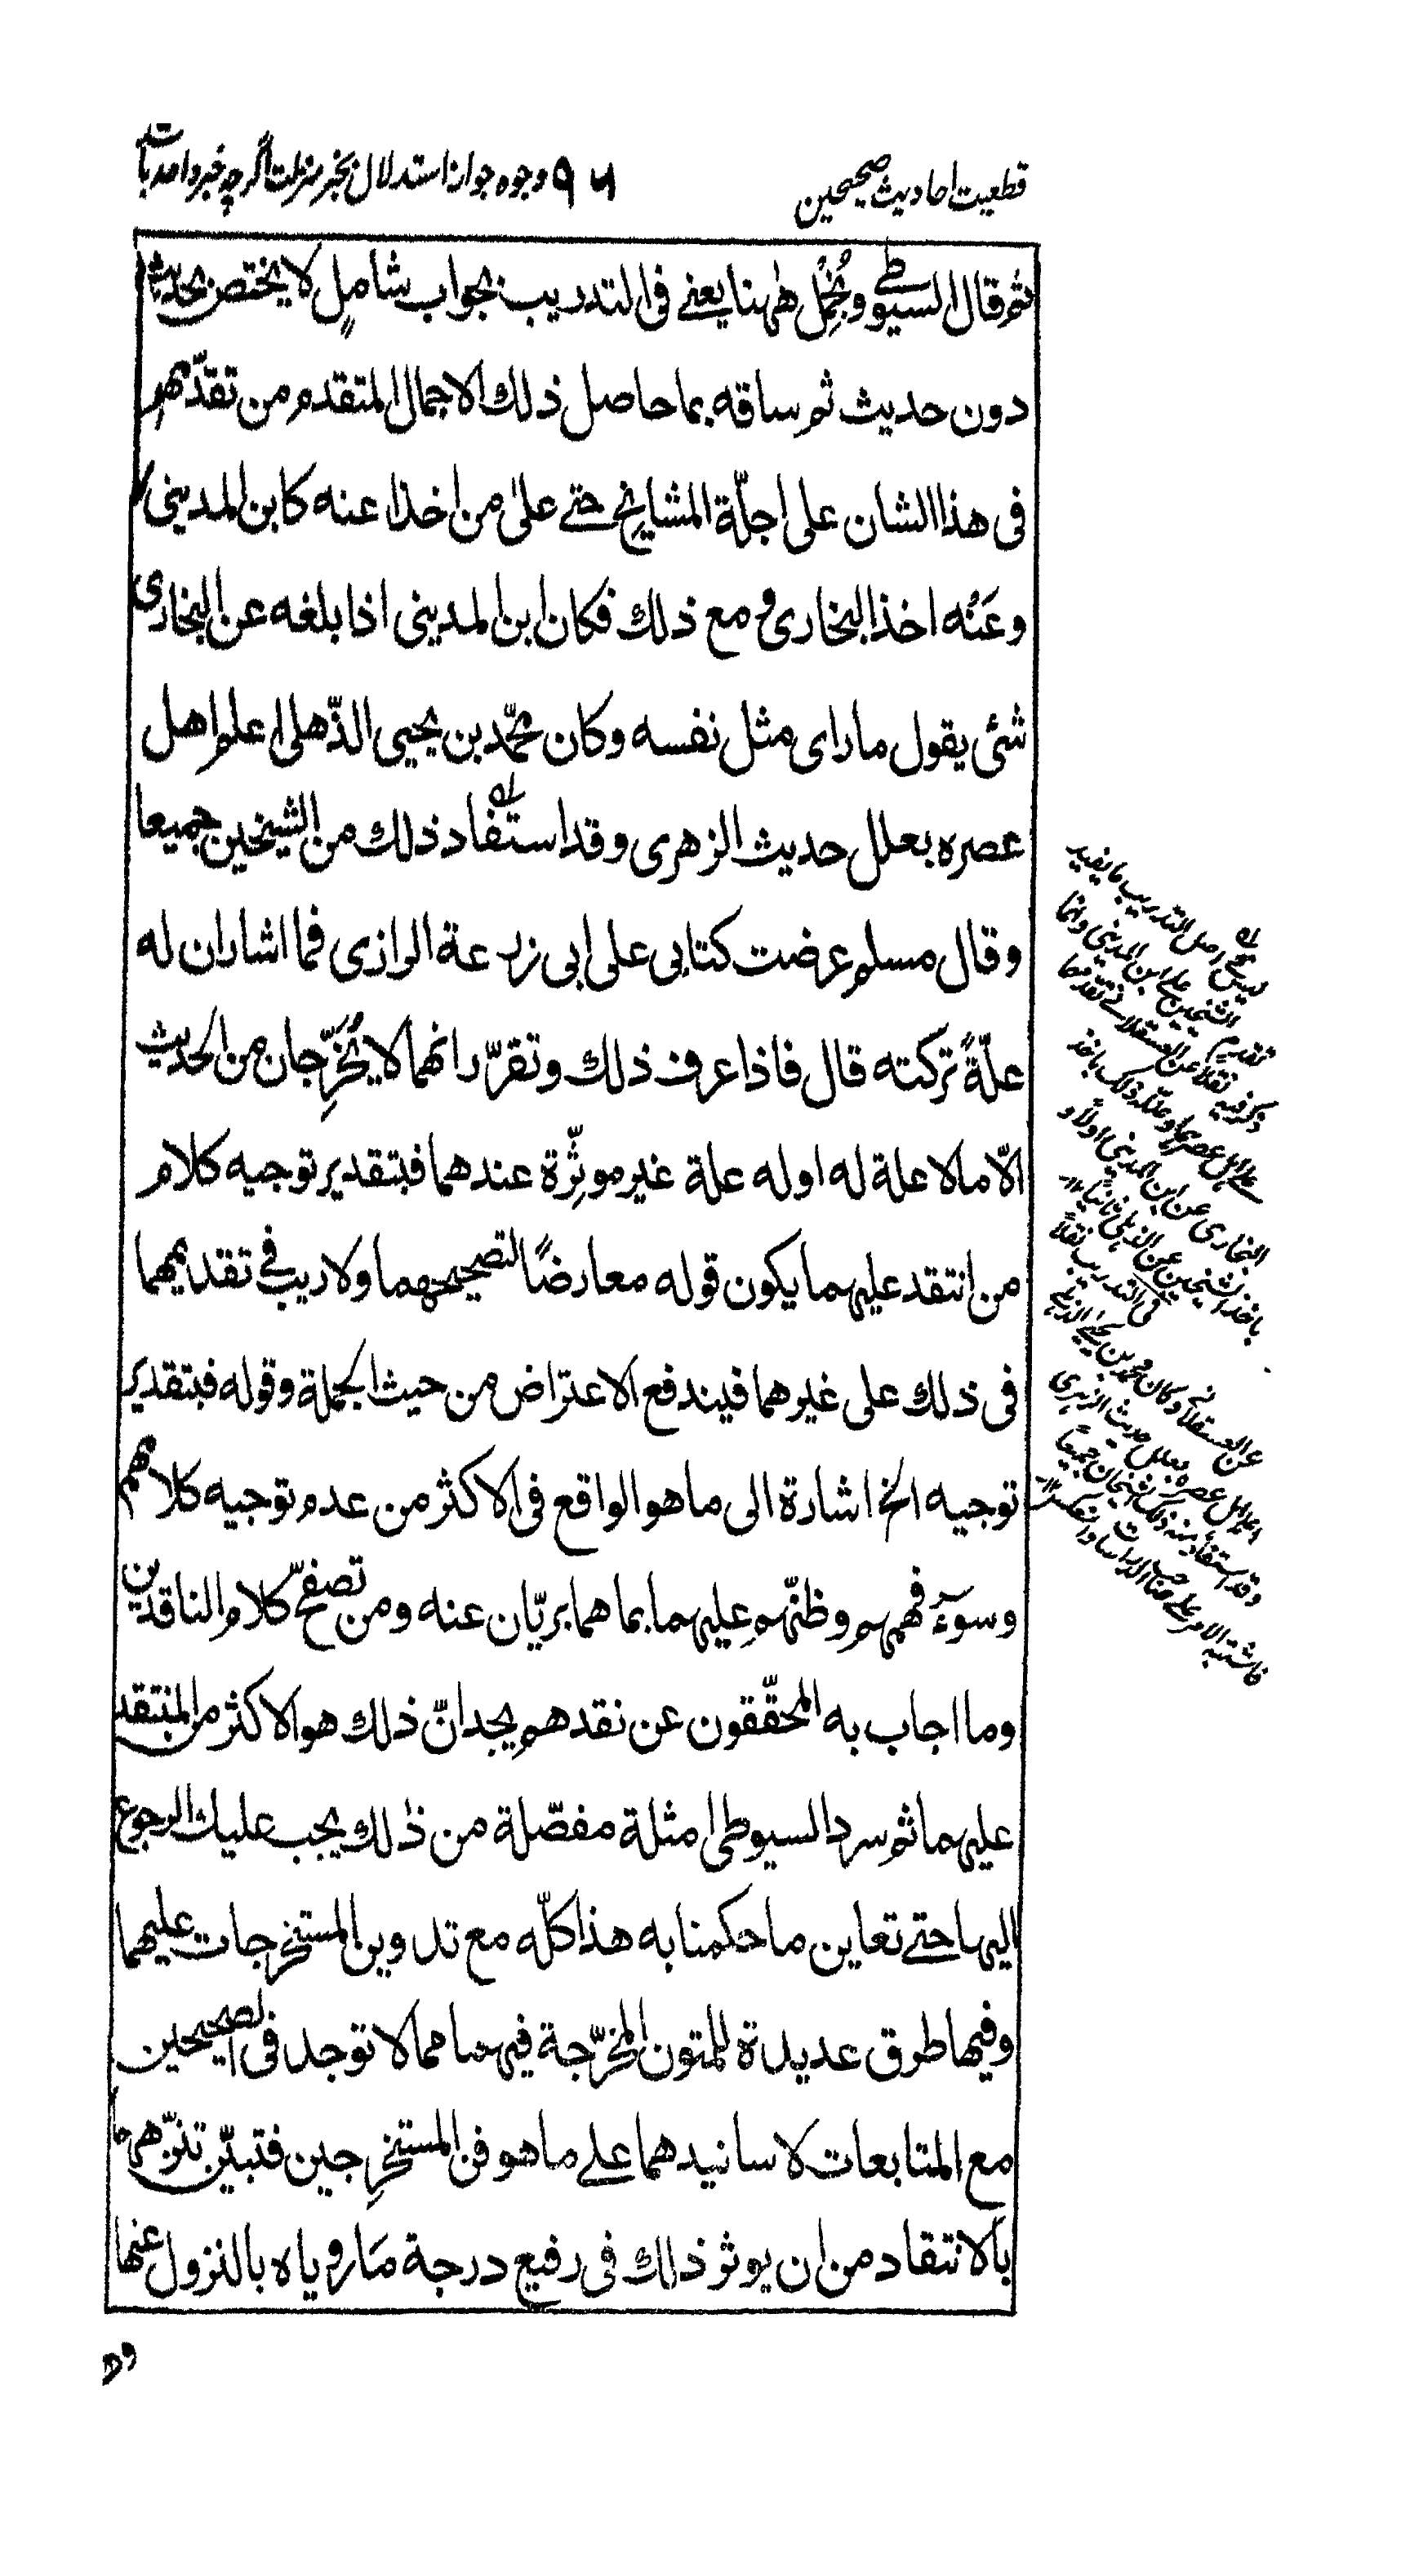 قطعیت احادیث صحیحین ۹۶ وجوه جواز استدلال بخبر منزلت اگرچه خبر واحد باشد
ثم قال السيوطي ونُجْمِل ههنا يعني في التدريب بجواب شاملٍ لا يختص بحديث
دون حديث ثم ساقه بما حاصل ذلك الاجمال المتقدم من تقدّمهم
في هذا الشان على اجلّة المشايخ حتى على من اخذا عنه كابن المديني
وعَنْه اخذ البخاري ومع ذلك فكان ابن المديني اذا بلغه عن البخاري
شئ يقول ما راى مثل نفسه وكان محمّد بن يحيى الذّهلي اعلم اهل
عصره بعلل حديث الزهري وقد استفاد ذلك من الشيخين جميعا
وقال مسلم عرضت كتابي على ابي زرعة الرازي فما اشار ان له
علّةً تركته قال فاذا عرف ذلك وتقرّر انهما لا يُخَرِّجان من الحديث
الّا ما لا علة له او له علة غير موثِّرة عندهما فبتقدير توجيه كلام
من انتقد عليهما يكون قوله معارضًا لتصحيحهما ولا ريب في تقديمهما
في ذلك على غيرهما فيندفع الاعتراض من حيث الجملة وقوله فبتقدير
توجيه الخ اشارة الى ما هو الواقع في الاكثر من عدم توجيه كلامهم
وسوءِ فهمهم وظنّهم عليهما بما هما بريّان عنه ومن تصفّح كلام الناقدين
وما اجاب به المحقّقون عن نقدهم يجد انّ ذلك هو الاكثر من المنتقد
عليهما ثم سرد السيوطي امثلة مفصّلة من ذلك يجب عليك الرجوع
اليها حتى تعاين ما حكمنا به هذا كلّه مع تدوين المستخرجات عليهما
وفيها طرق عديدة للمتون المخرّجة فيهما مما لا توجد في الصحيحين
مع المتابعات لاسانيدهما على ما هو فن المستخرِجين فتبيّن تنزّههما
بالانتقاد من ان يوثر ذلك في رفيع درجة مَا روياه بالنزول عنها
له ليس في اصل التدريب ما يفيد
تقديم الشيخين على ابن المديني وانما
ذكر فيه نقلا عن العسقلاني تقدمهما
على اهل عصرهما وعلّل ذلك باخذ
البخاري عن ابن المديني اولا و
باخذ الشيخين عن الذهلي ثانيا
في التدريب نقلاً
عن العسقلاني وكان محمد بن يحيى الذهلي
اعلم اهل عصره بعلل حديث الزهري
وقد استفاد منه ذلك الشيخان جميعاً
فاشتبه الامر على